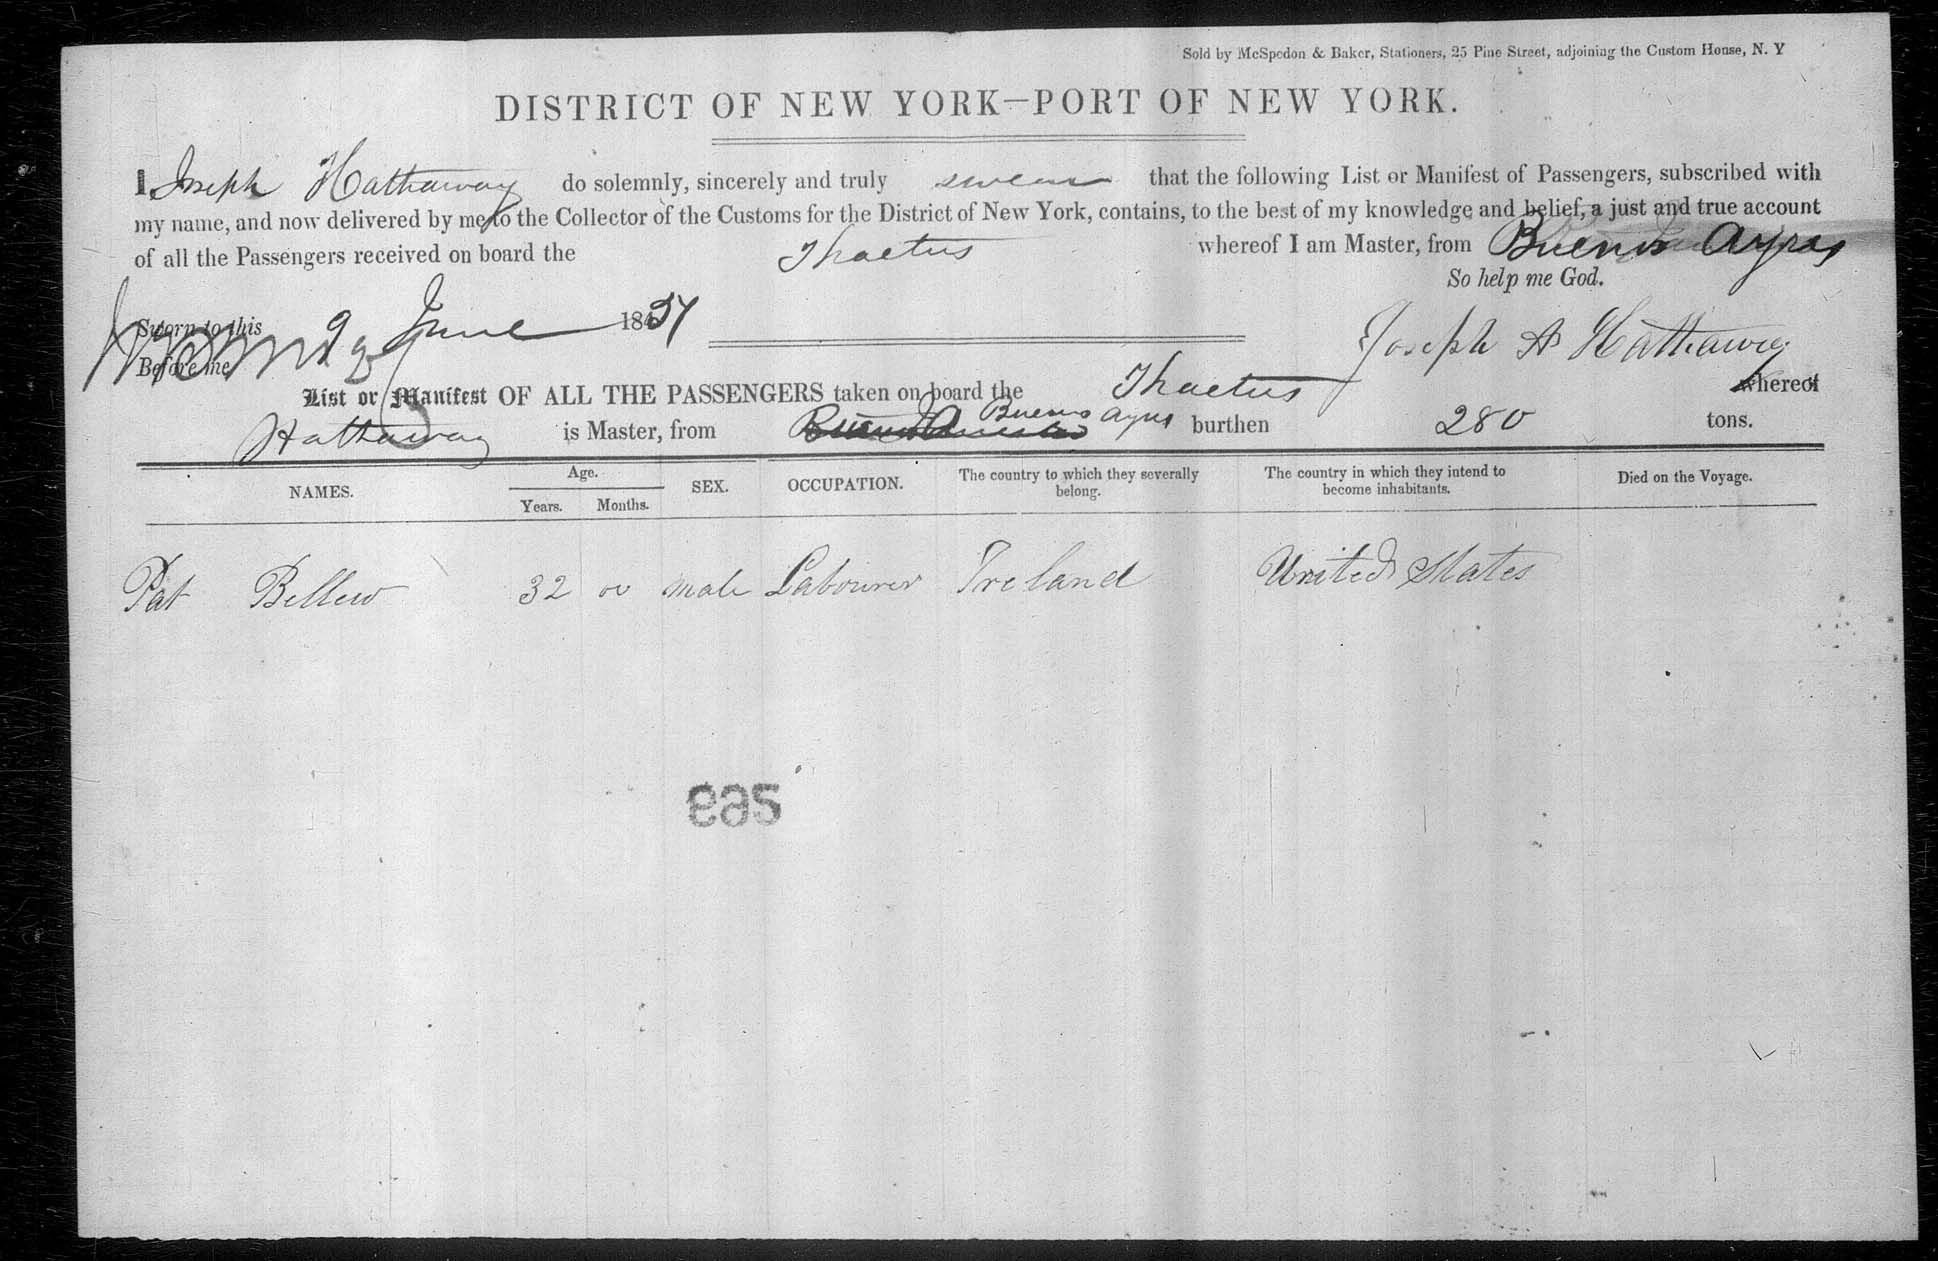 Sold by McSpedon & Baker, Stationers, 25 Pine Street, adjoining the Custom House, N. Y
DISTRICT OF NEW YORK—PORT OF NEW YORK.
I Joseph Hathaway do solemnly, sincerely and truly swear that the following List or Manifest of Passengers, subscribed with
my name, and now delivered by me to the Collector of the Customs for the District of New York, contains, to the best of my knowledge and belief, a just and true account
of all the Passengers received on board the Thaetus whereof I am Master, from Buenos Ayres
So help me God.
Sworn to this 9 June 18
Before me
Joseph A Hathaway
List or Manifest OF ALL THE PASSENGERS taken on board the Thaetus whereof
Hathaway is Master, from Buenos Ayres burthen 280 tons.
NAMES. Age. Years. Months. SEX. OCCUPATION. The country to which they severally belong. The country in which they intend to become inhabitants. Died on the Voyage.
Pat Bellew 32 00 male Labourer Ireland United States
569